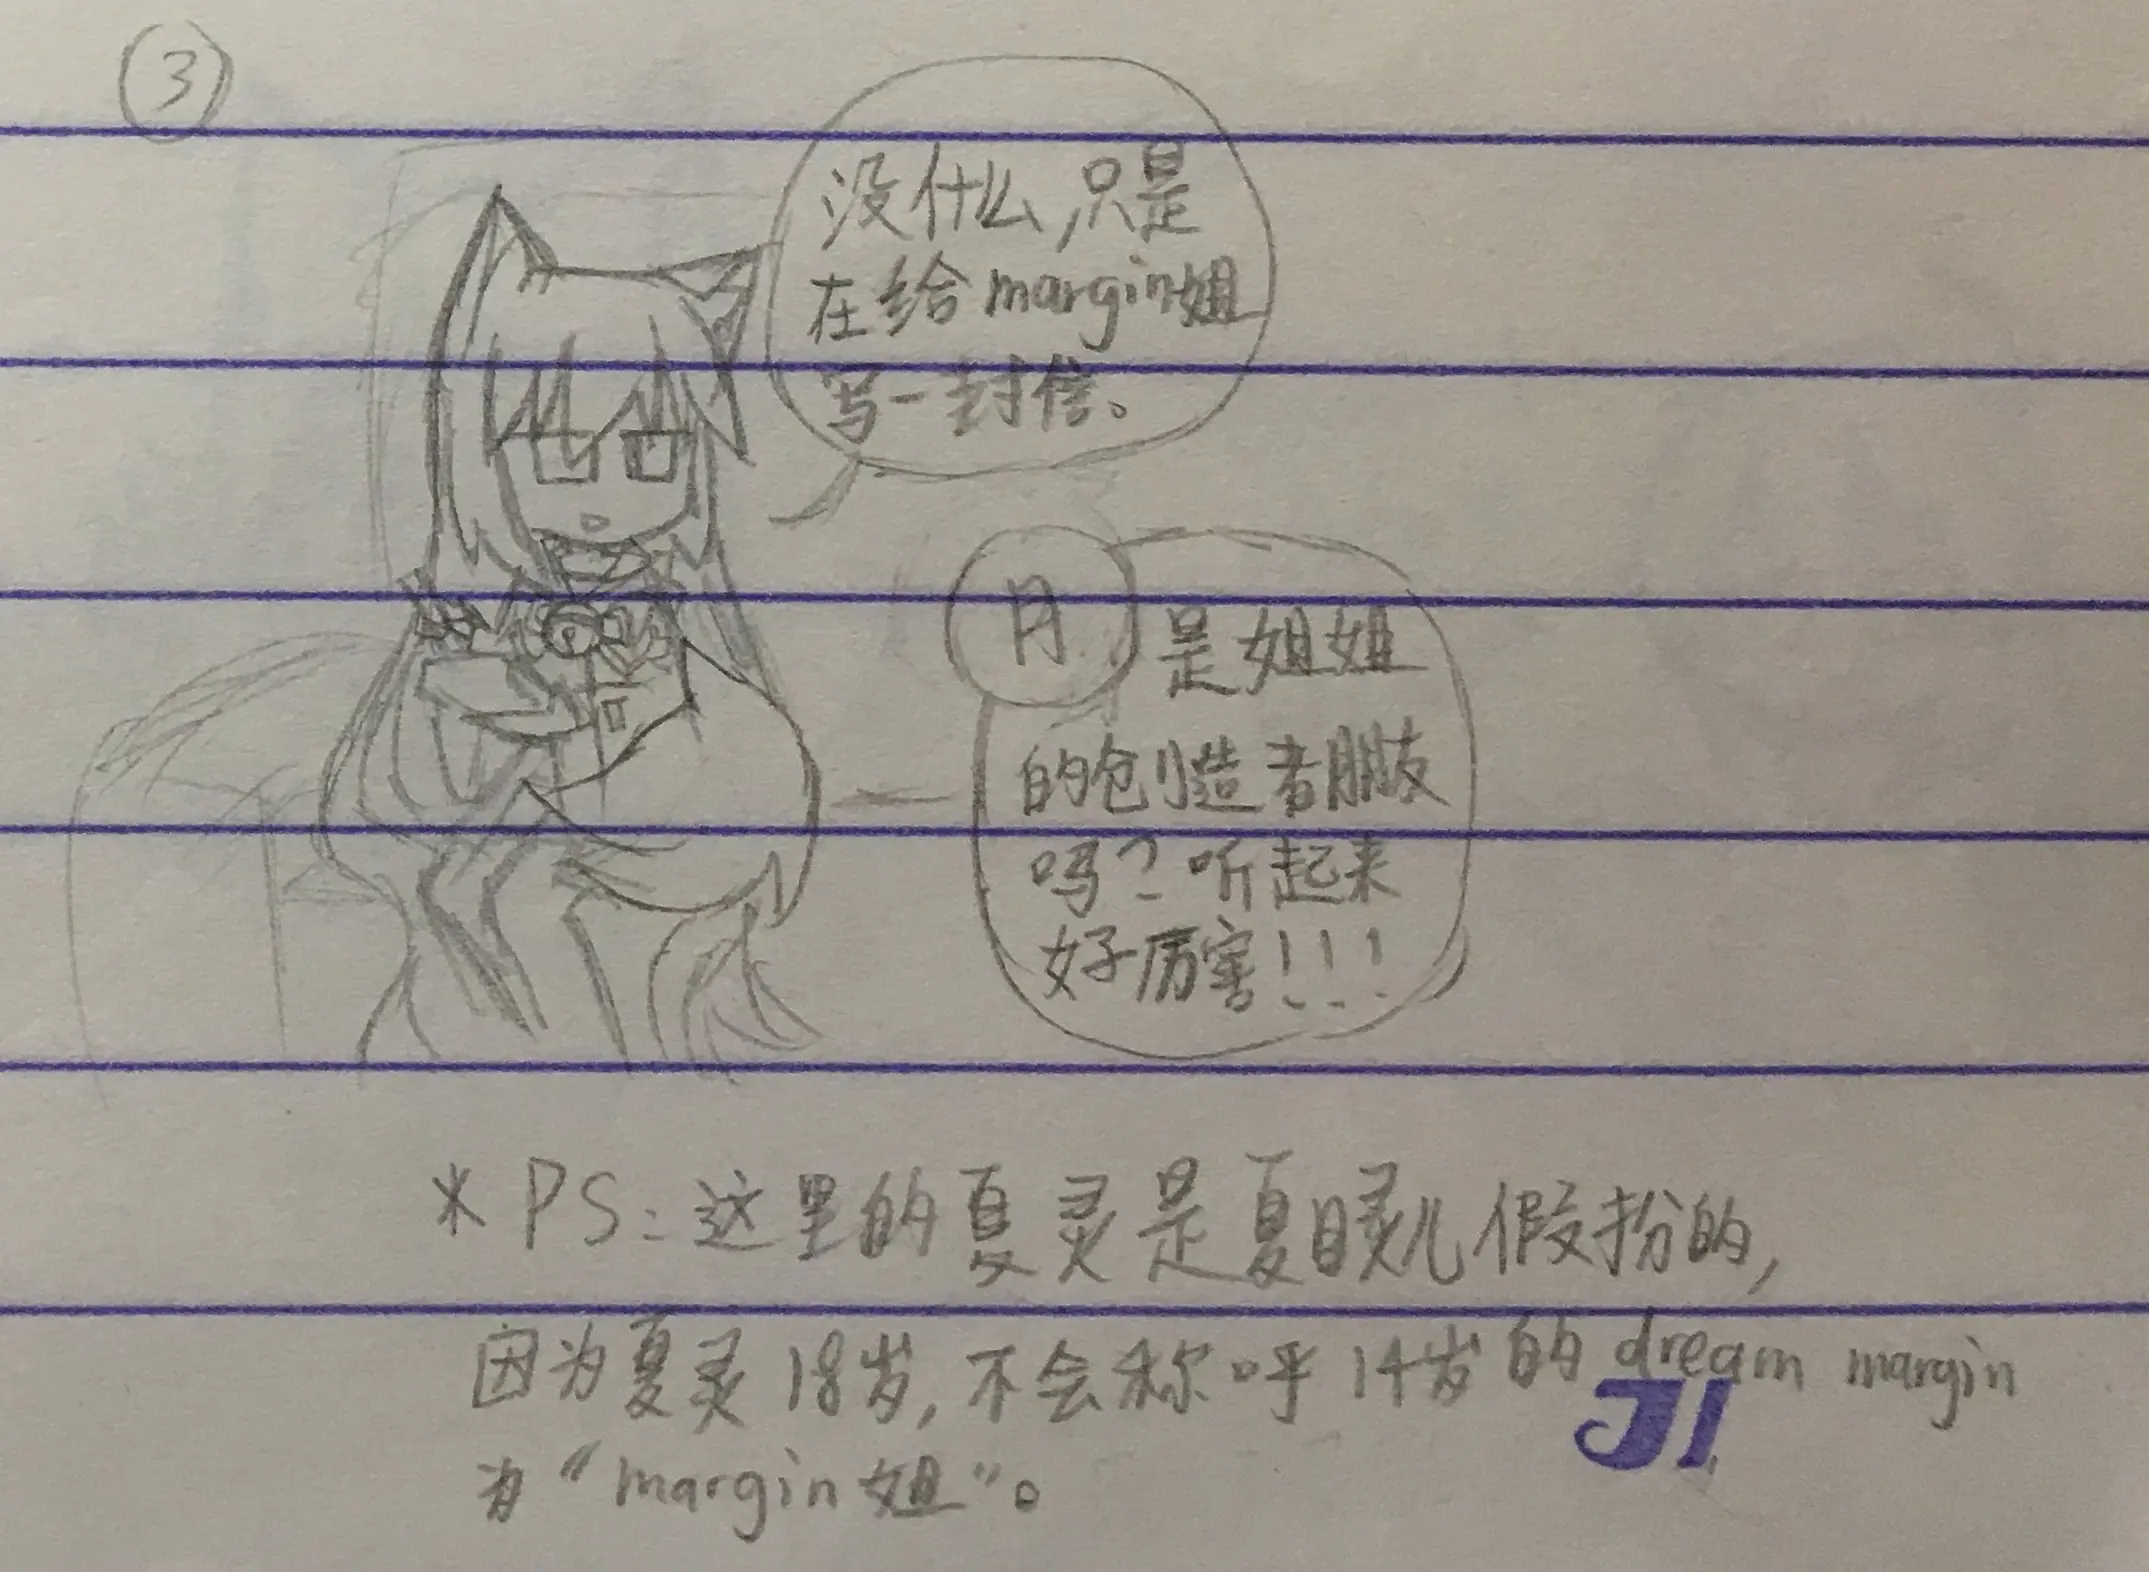 ③
没什么,只是
在给margin姐
写一封信。
月
是姐姐
的创造者朋友
吗?听起来
好厉害!!!
*PS:这里的夏灵是夏眼儿假扮的,
因为夏灵18岁,不会称呼14岁的dream margin
为“margin姐”。
JI